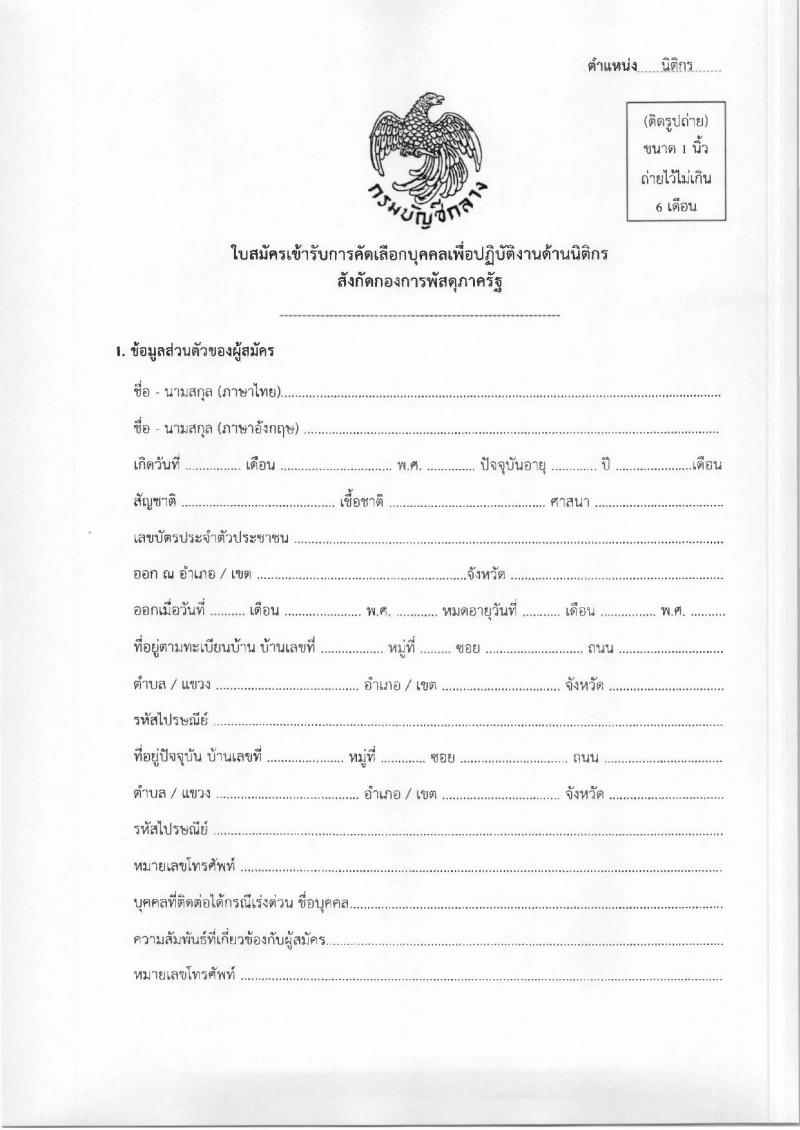 ตำแหน่ง......นิติกร........
กรมบัญชีกลาง
(ติดรูปถ่าย)
ขนาด 1 นิ้ว
ถ่ายไว้ไม่เกิน
6 เดือน
ใบสมัครเข้ารับการคัดเลือกบุคคลเพื่อปฏิบัติงานด้านนิติกร
สังกัดกองการพัสดุภาครัฐ
1. ข้อมูลส่วนตัวของผู้สมัคร
ชื่อ - นามสกุล (ภาษาไทย)..........
ชื่อ - นามสกุล (ภาษาอังกฤษ) ..........
เกิดวันที่ .......... เดือน .......... พ.ศ. .......... ปัจจุบันอายุ .......... ปี ..........เดือน
สัญชาติ .......... เชื้อชาติ .......... ศาสนา ..........
เลขบัตรประจำตัวประชาชน ..........
ออก ณ อำเภอ / เขต ..........จังหวัด ..........
ออกเมื่อวันที่ .......... เดือน .......... พ.ศ. .......... หมดอายุวันที่ .......... เดือน .......... พ.ศ. ..........
ที่อยู่ตามทะเบียนบ้าน บ้านเลขที่ .......... หมู่ที่ .......... ซอย .......... ถนน ..........
ตำบล / แขวง .......... อำเภอ / เขต .......... จังหวัด ..........
รหัสไปรษณีย์ ..........
ที่อยู่ปัจจุบัน บ้านเลขที่ .......... หมู่ที่ .......... ซอย .......... ถนน ..........
ตำบล / แขวง .......... อำเภอ / เขต .......... จังหวัด ..........
รหัสไปรษณีย์ ..........
หมายเลขโทรศัพท์ ..........
บุคคลที่ติดต่อได้กรณีเร่งด่วน ชื่อบุคคล..........
ความสัมพันธ์ที่เกี่ยวข้องกับผู้สมัคร..........
หมายเลขโทรศัพท์ ..........